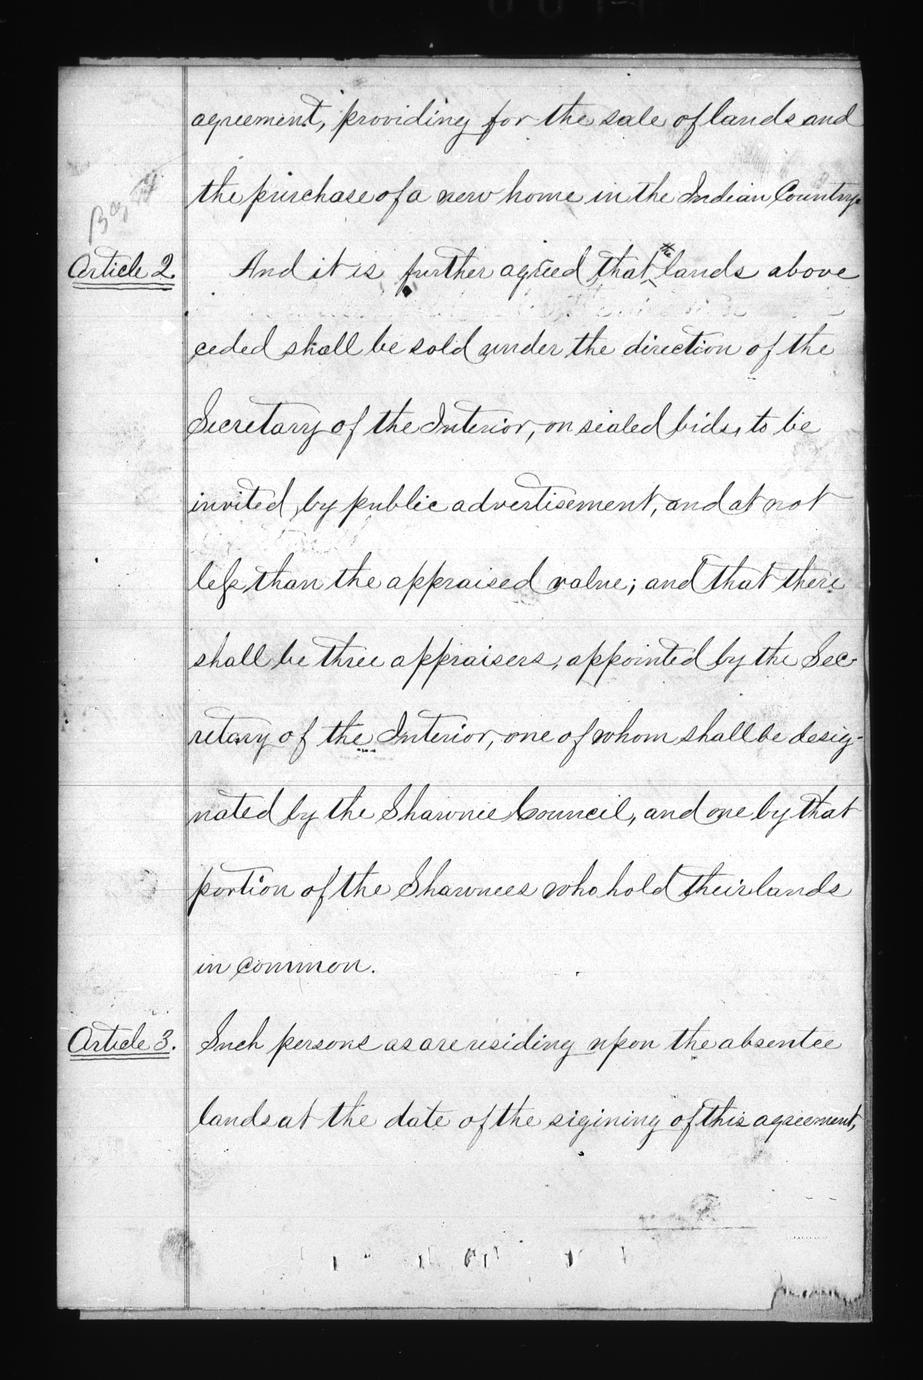 agreement, providing for the sale of lands and
the purchase of a new home in the Indian Country.
Article 2. And it is further agreed that the lands above
ceded shall be sold under the direction of the
Secretary of the Interior, on sealed bids, to be
invited by public advertisement, and at not
less than the appraised value; and that there
shall be three appraisers, appointed by the Sec-
retary of the Interior, one of whom shall be desig-
nated by the Shawnee Council, and one by that
portion of the Shawnees who hold their lands
in common.
Article 3. Such persons as are residing upon the absentee
lands at the date of the sigining of this agreement,